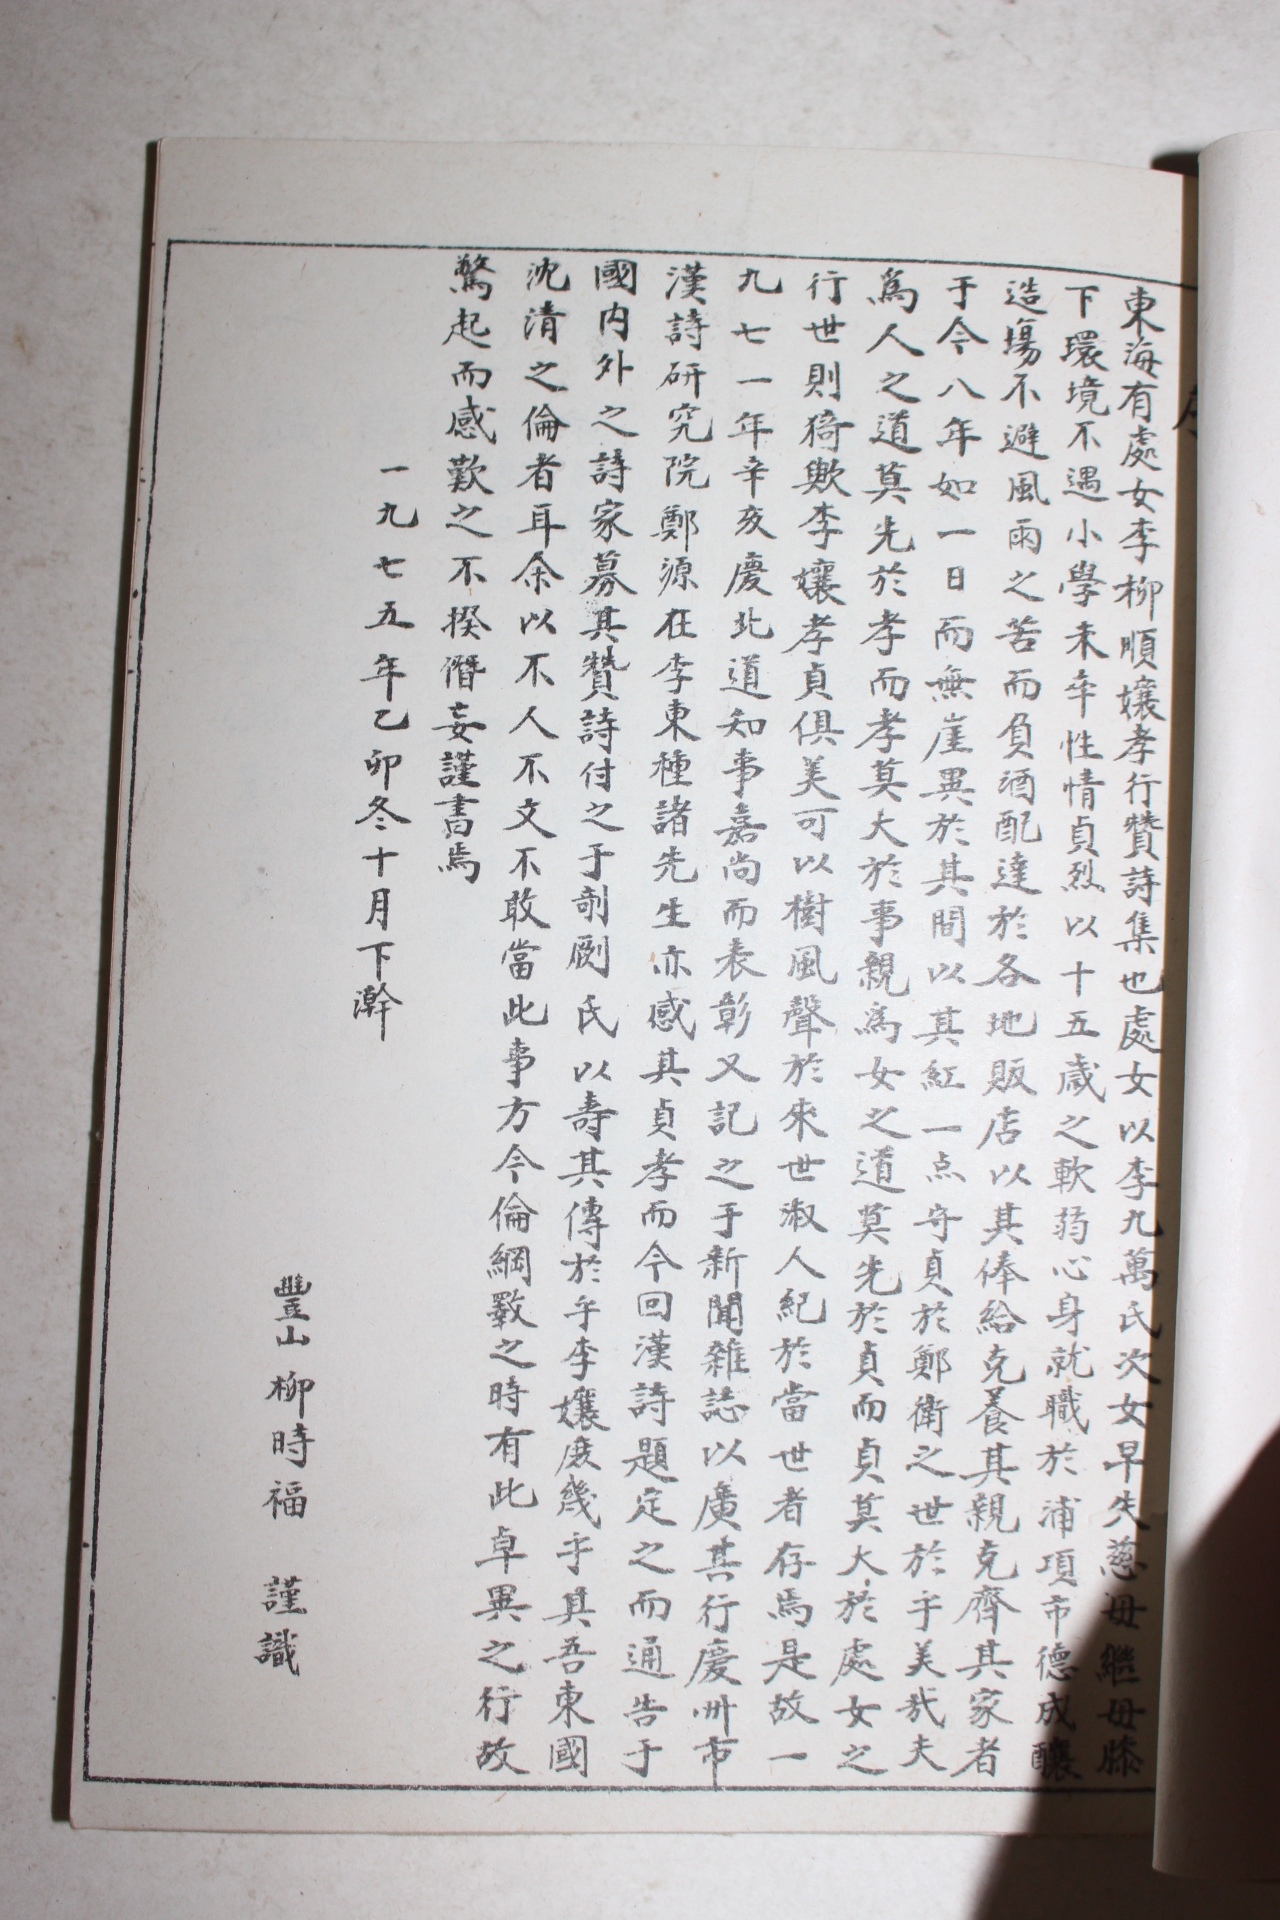 序
東海有處女李柳順孃孝行贊詩集也處女以李九萬氏次女早失慈母繼母膝
下環境不遇小學未卒性情貞烈以十五歲之軟弱心身就職於浦項市德成釀
造場不避風雨之苦而負酒配達於各地販店以其俸給克養其親克齊其家者
于今八年如一日而無崖異於其間以其紅一点守貞於鄭衛之世於乎美哉夫
爲人之道莫先於孝而孝莫大於事親爲女之道莫先於貞而貞莫大於處女之
行世則猗歟李孃孝貞俱美可以樹風聲於來世淑人紀於當世者存焉是故一
九七一年辛亥慶北道知事嘉尚而表彰又記之于新聞雜誌以廣其行慶州市
漢詩研究院鄭源在李東種諸先生亦感其貞孝而今回漢詩題定之而通告于
國内外之詩家募其贊詩付之于剞劂氏以壽其傳於乎李孃庶幾乎其吾東國
沈清之倫者耳余以不人不文不敢當此事方今倫綱斁之時有此卓異之行故
驚起而感歎之不揆僭妄謹書焉
一九七五年乙卯冬十月下澣
豐山柳時福 謹識